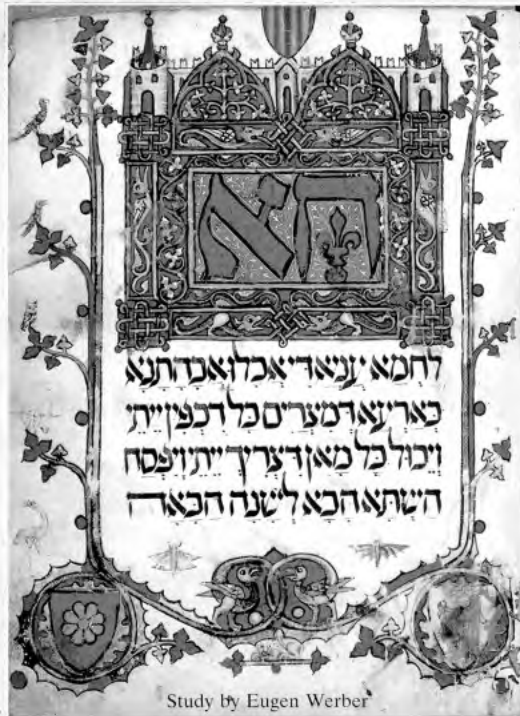 הא
לחמא עניא די אכלו אבהתנא
בארעא דמצרים כל דכפין ייתי
ויכול כל מאן דצריך ייתי ויפסח
השתא הכא לשנה הבאה
Study by Eugen Werber